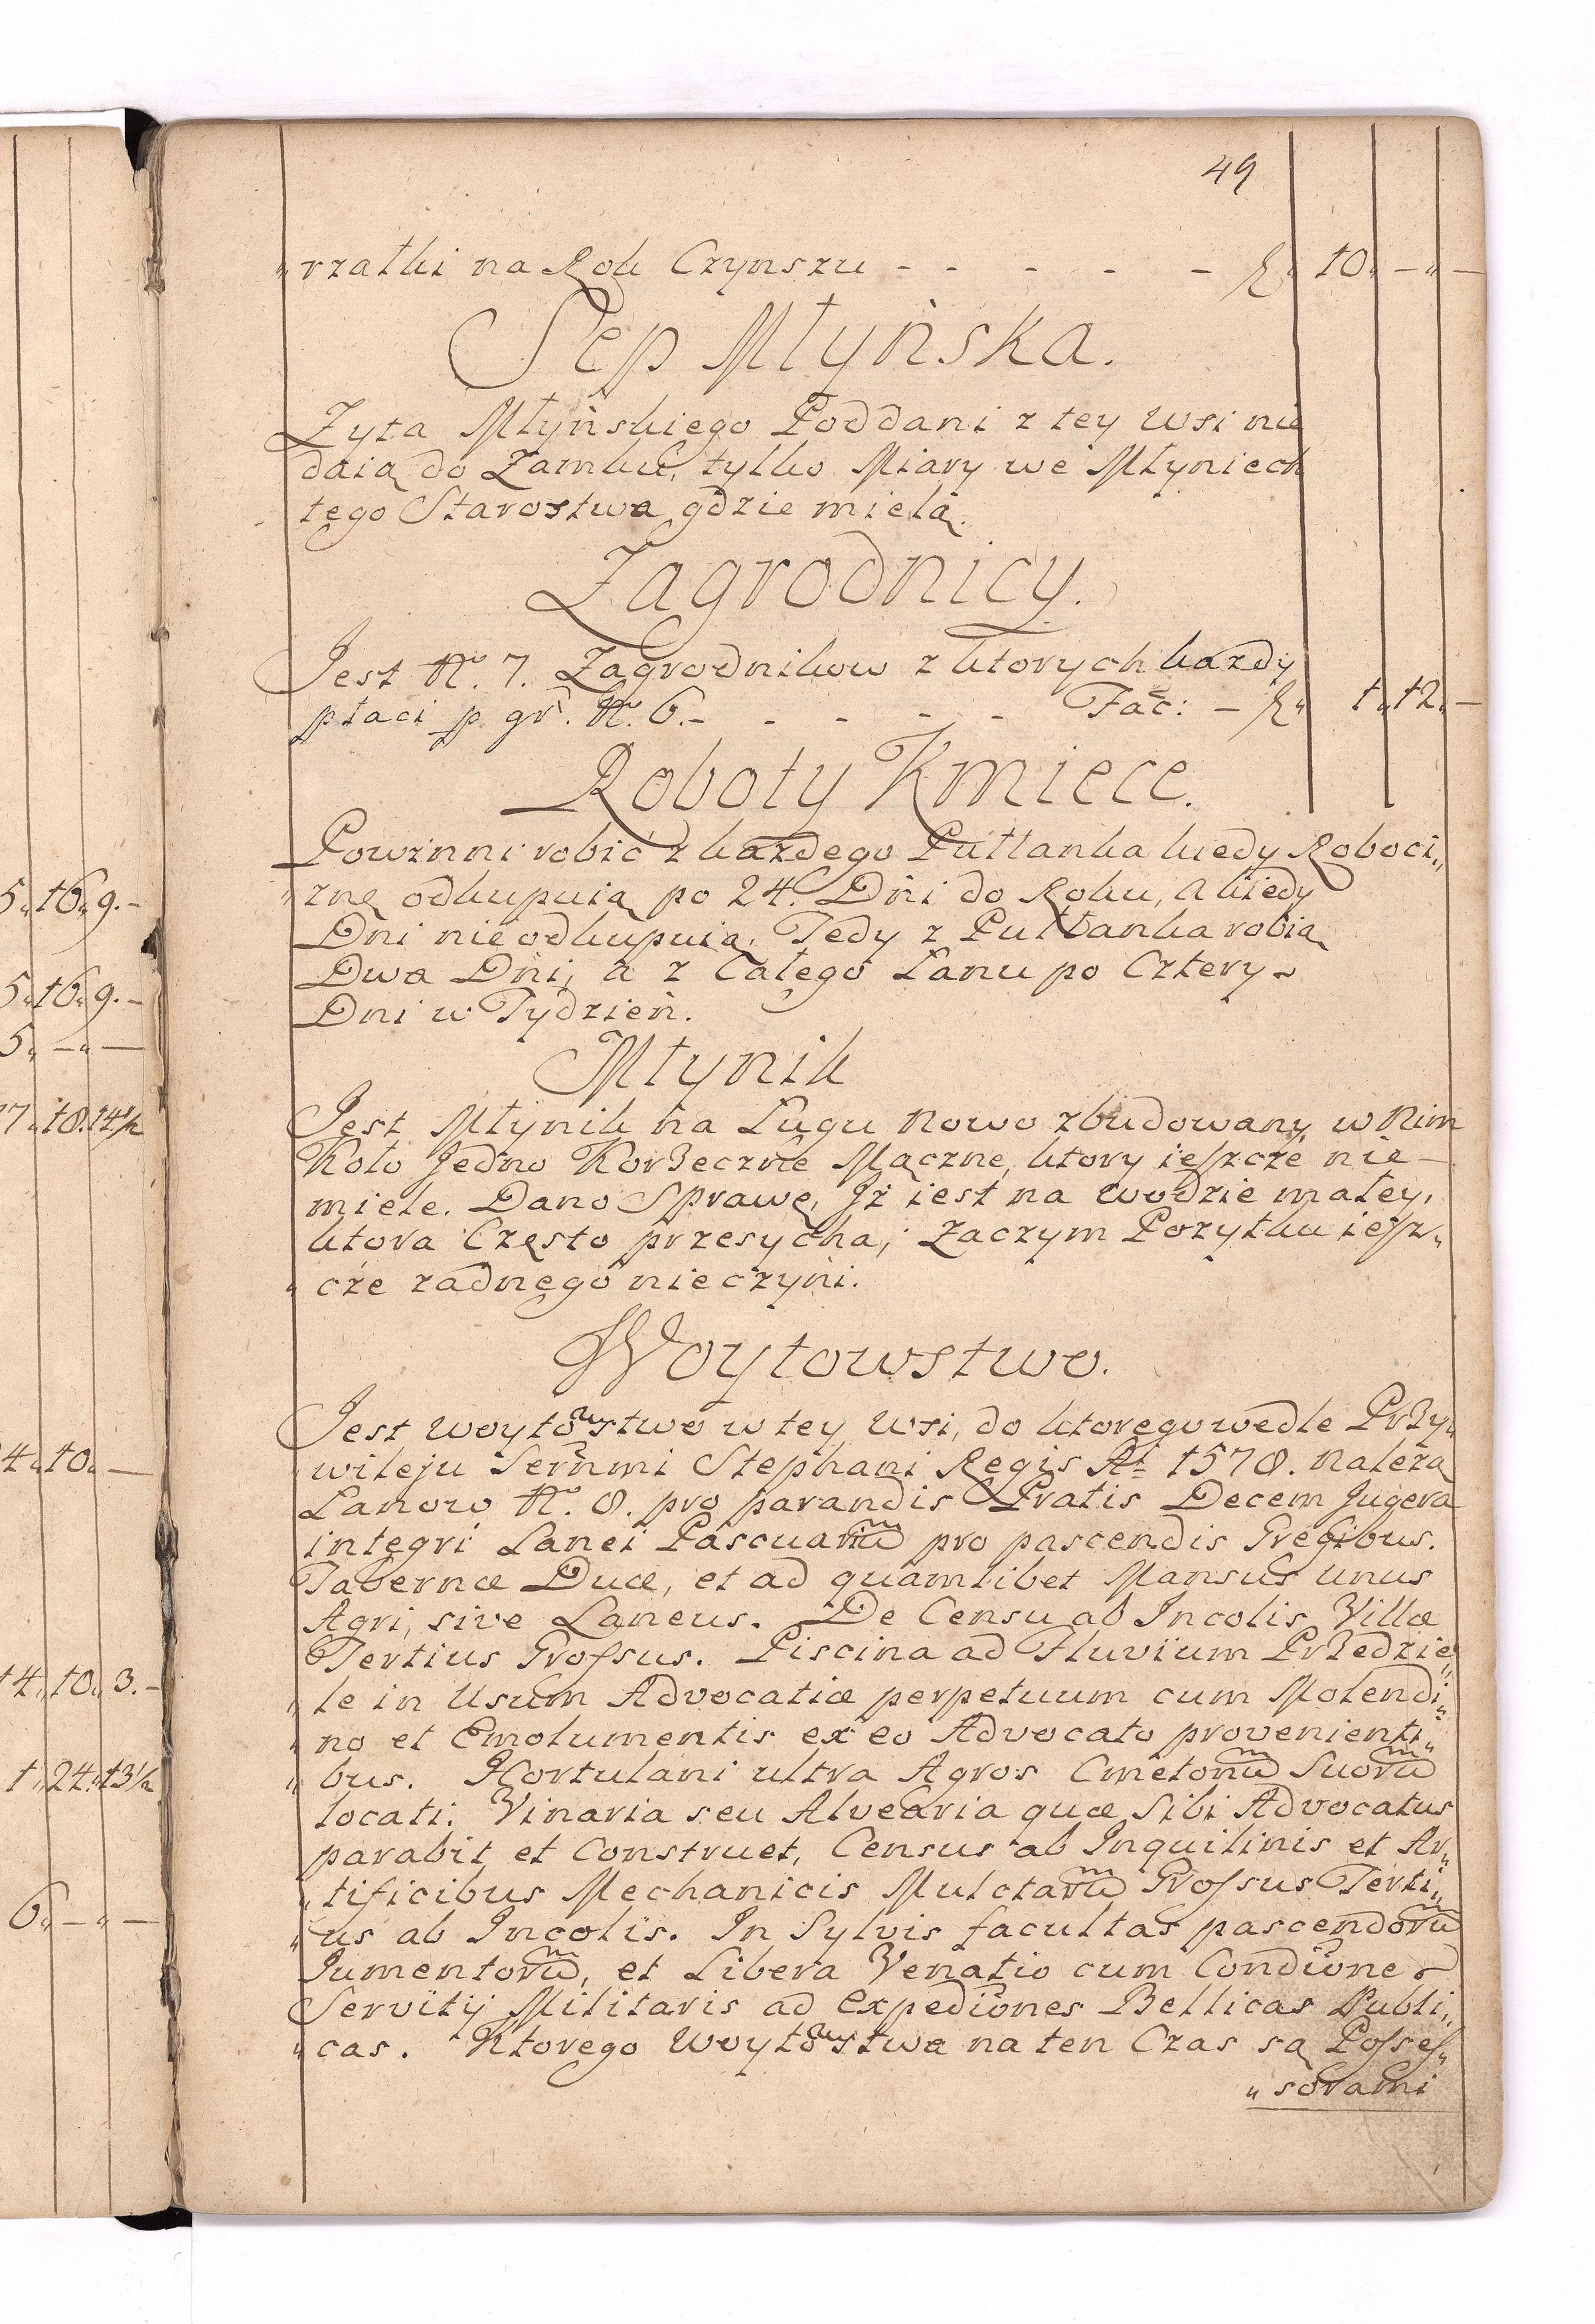 49
„rzatki na Rok Czynszu - - - - - f„ 10„ —„ —
Sep Młyńska.
Zyta Młyńskiego Poddani z tey Wsi nie
daią do Zamku, tylko Miary we Młyniech
tego Starostwa gdzie mielą.
Zagrodnicy.
Jest No. 7. Zagrodnikow z ktorych kazdy
płaci p gr. No. 6.- - - - - - Fac: - f„ 1„ 12„ —
Roboty Kmiece.
Powinni robić z kazdego Pułłanka kiedy Roboci„
„znę odkupuią po 24. Dni do Roku, a kiedy
Dni nieodkupuią. Tedy z Pułłanka robią
Dwa Dni, a z Całego Łanu po Cztery
Dni w Tydzień.
Młynik
Jest Młynik na Ługu Nowo zbudowany w Nim
Koło Jedno Korzeczne Mączne, ktory ieszcze nie-
miele. Dano Sprawę, Iż iest na wodzie małey,
ktora Często przesycha, Zaczym Pozytku iesz„
„cze zadnego nieczyni.
Woytowstwo.
Jest Woytowstwo w tey Wsi, do ktorego wedle Przy„
„wileju Sernmi Stephani Regis Ao 1578. Nalezą
Lanow No. 8. pro parandis Pratis Decem Jugera
integri Lanei Pascuaru pro pascendis Gregibus.
Tabernæ Duæ, et ad quamlibet Mansus Unus
Agri, sive Laneus. De Censu ab Incolis Villæ
Tertius Grossus. Piscina ad Fluvium Przedzie„
„le in Usum Advocatiæ perpetuum cum Molendi„
„no et Emolumentis ex eo Advocato provenienti„
„bus. Hortulani ultra Agros Cmetonu Suoru
locati. Vinaria seu Alvearia quæ Sibi Advocatus
parabit et Construet, Census ab Inquilinis et Ar„
„tificibus Mechanicis Mulctaru Grossus Terti„
„us ab Incolis. In Sylvis facultas pascendoru
Jumentoru, et Libera Venatio cum Condiōne
Servitij Militaris ad Expediōnes Bellicas Publi„
„cas. Ktorego Woytowstwa na ten Czas są Posses„
„sorami
5„ 16„ 9.-
5„ 16„ 9.-
5„ —„ —
17„ 18. 14½
4„ 10„ —
14„ 10„ 3.-
1„ 24„ 13½
6„ —„ —